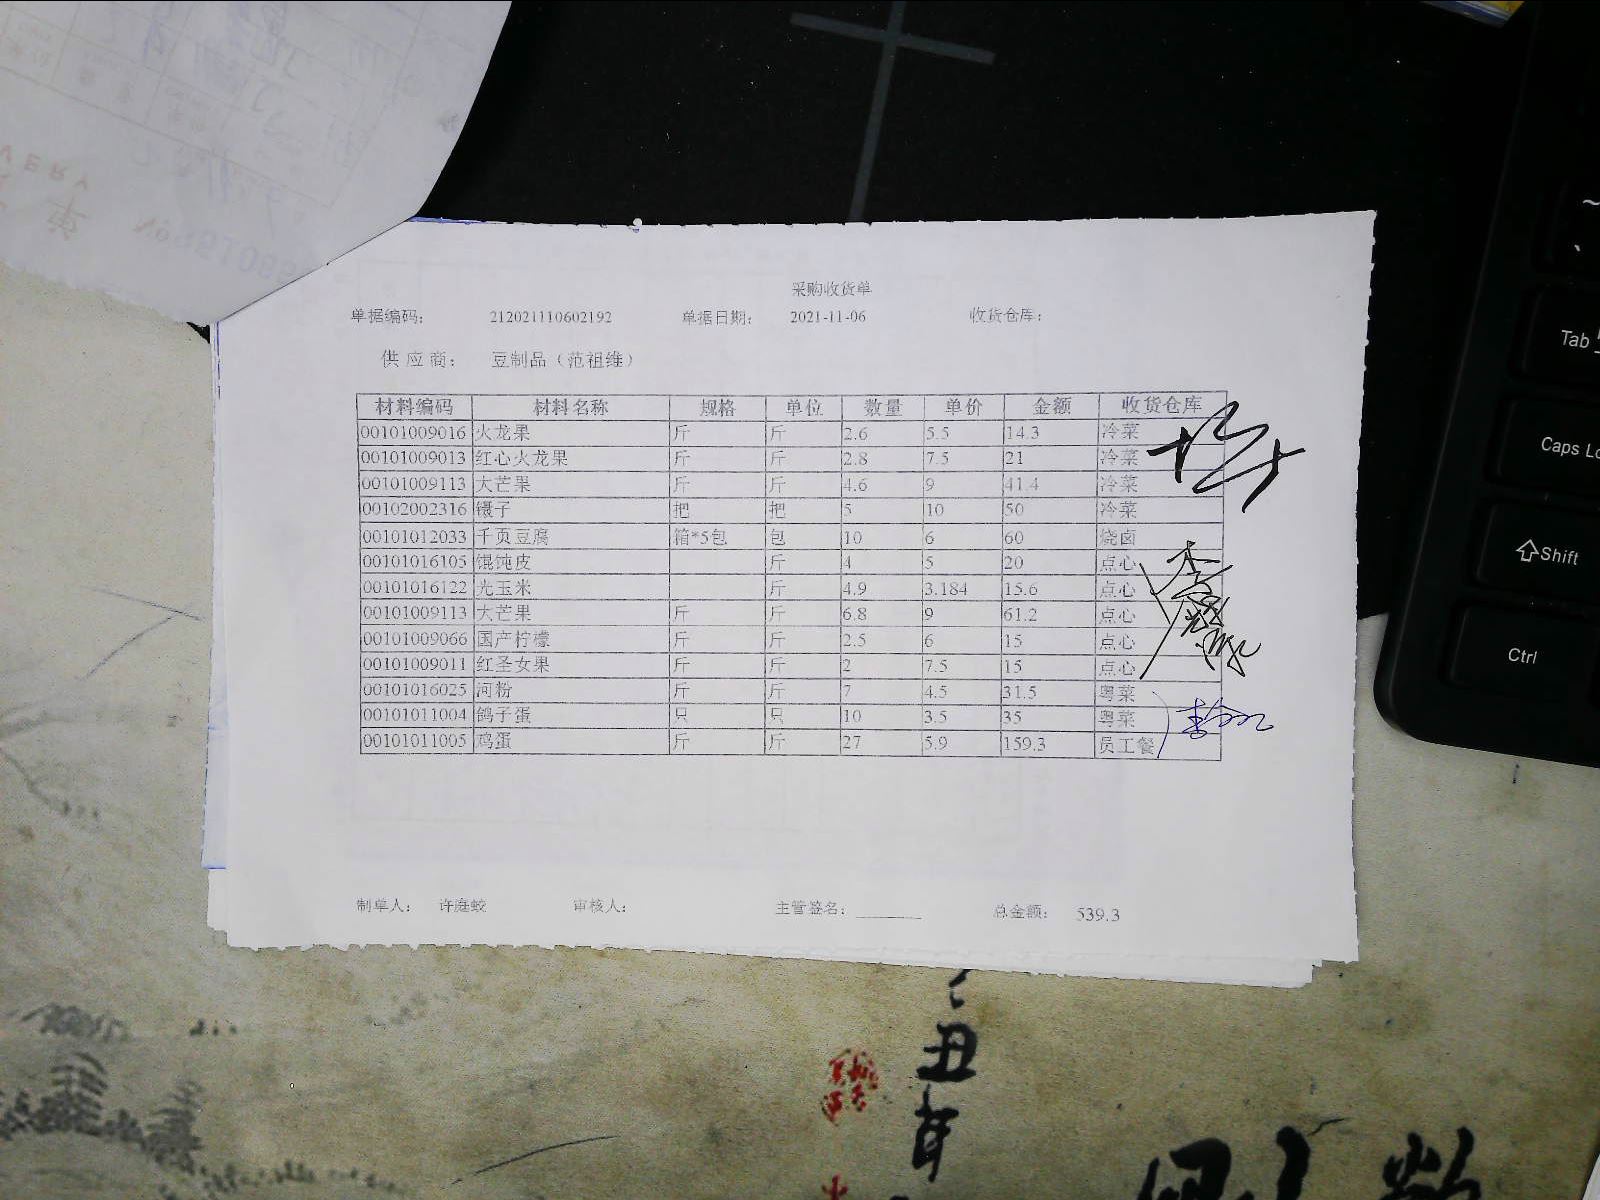 采购收货单
单据编码: 212021110602192 单据日期: 2021-11-06 收货仓库:
供应商: 豆制品（范祖维）
材料编码 材料名称 规格 单位 数量 单价 金额 收货仓库
00101009016 火龙果 斤 斤 2.6 5.5 14.3 冷菜
00101009013 红心火龙果 斤 斤 2.8 7.5 21 冷菜
00101009113 大芒果 斤 斤 4.6 9 41.4 冷菜
00102002316 镊子 把 把 5 10 50 冷菜
00101012033 千页豆腐 箱*5包 包 10 6 60 烧卤
00101016105 馄饨皮 斤 4 5 20 点心
00101016122 光玉米 斤 4.9 3.184 15.6 点心
00101009113 大芒果 斤 斤 6.8 9 61.2 点心
00101009066 国产柠檬 斤 斤 2.5 6 15 点心
00101009011 红圣女果 斤 斤 2 7.5 15 点心
00101016025 河粉 斤 斤 7 4.5 31.5 粤菜
00101011004 鸽子蛋 只 只 10 3.5 35 粤菜
00101011005 鸡蛋 斤 斤 27 5.9 159.3 员工餐
制单人: 许庭蛟 审核人: 主管签名: 总金额: 539.3
Tab
Caps Lo
Shift
Ctrl
丑